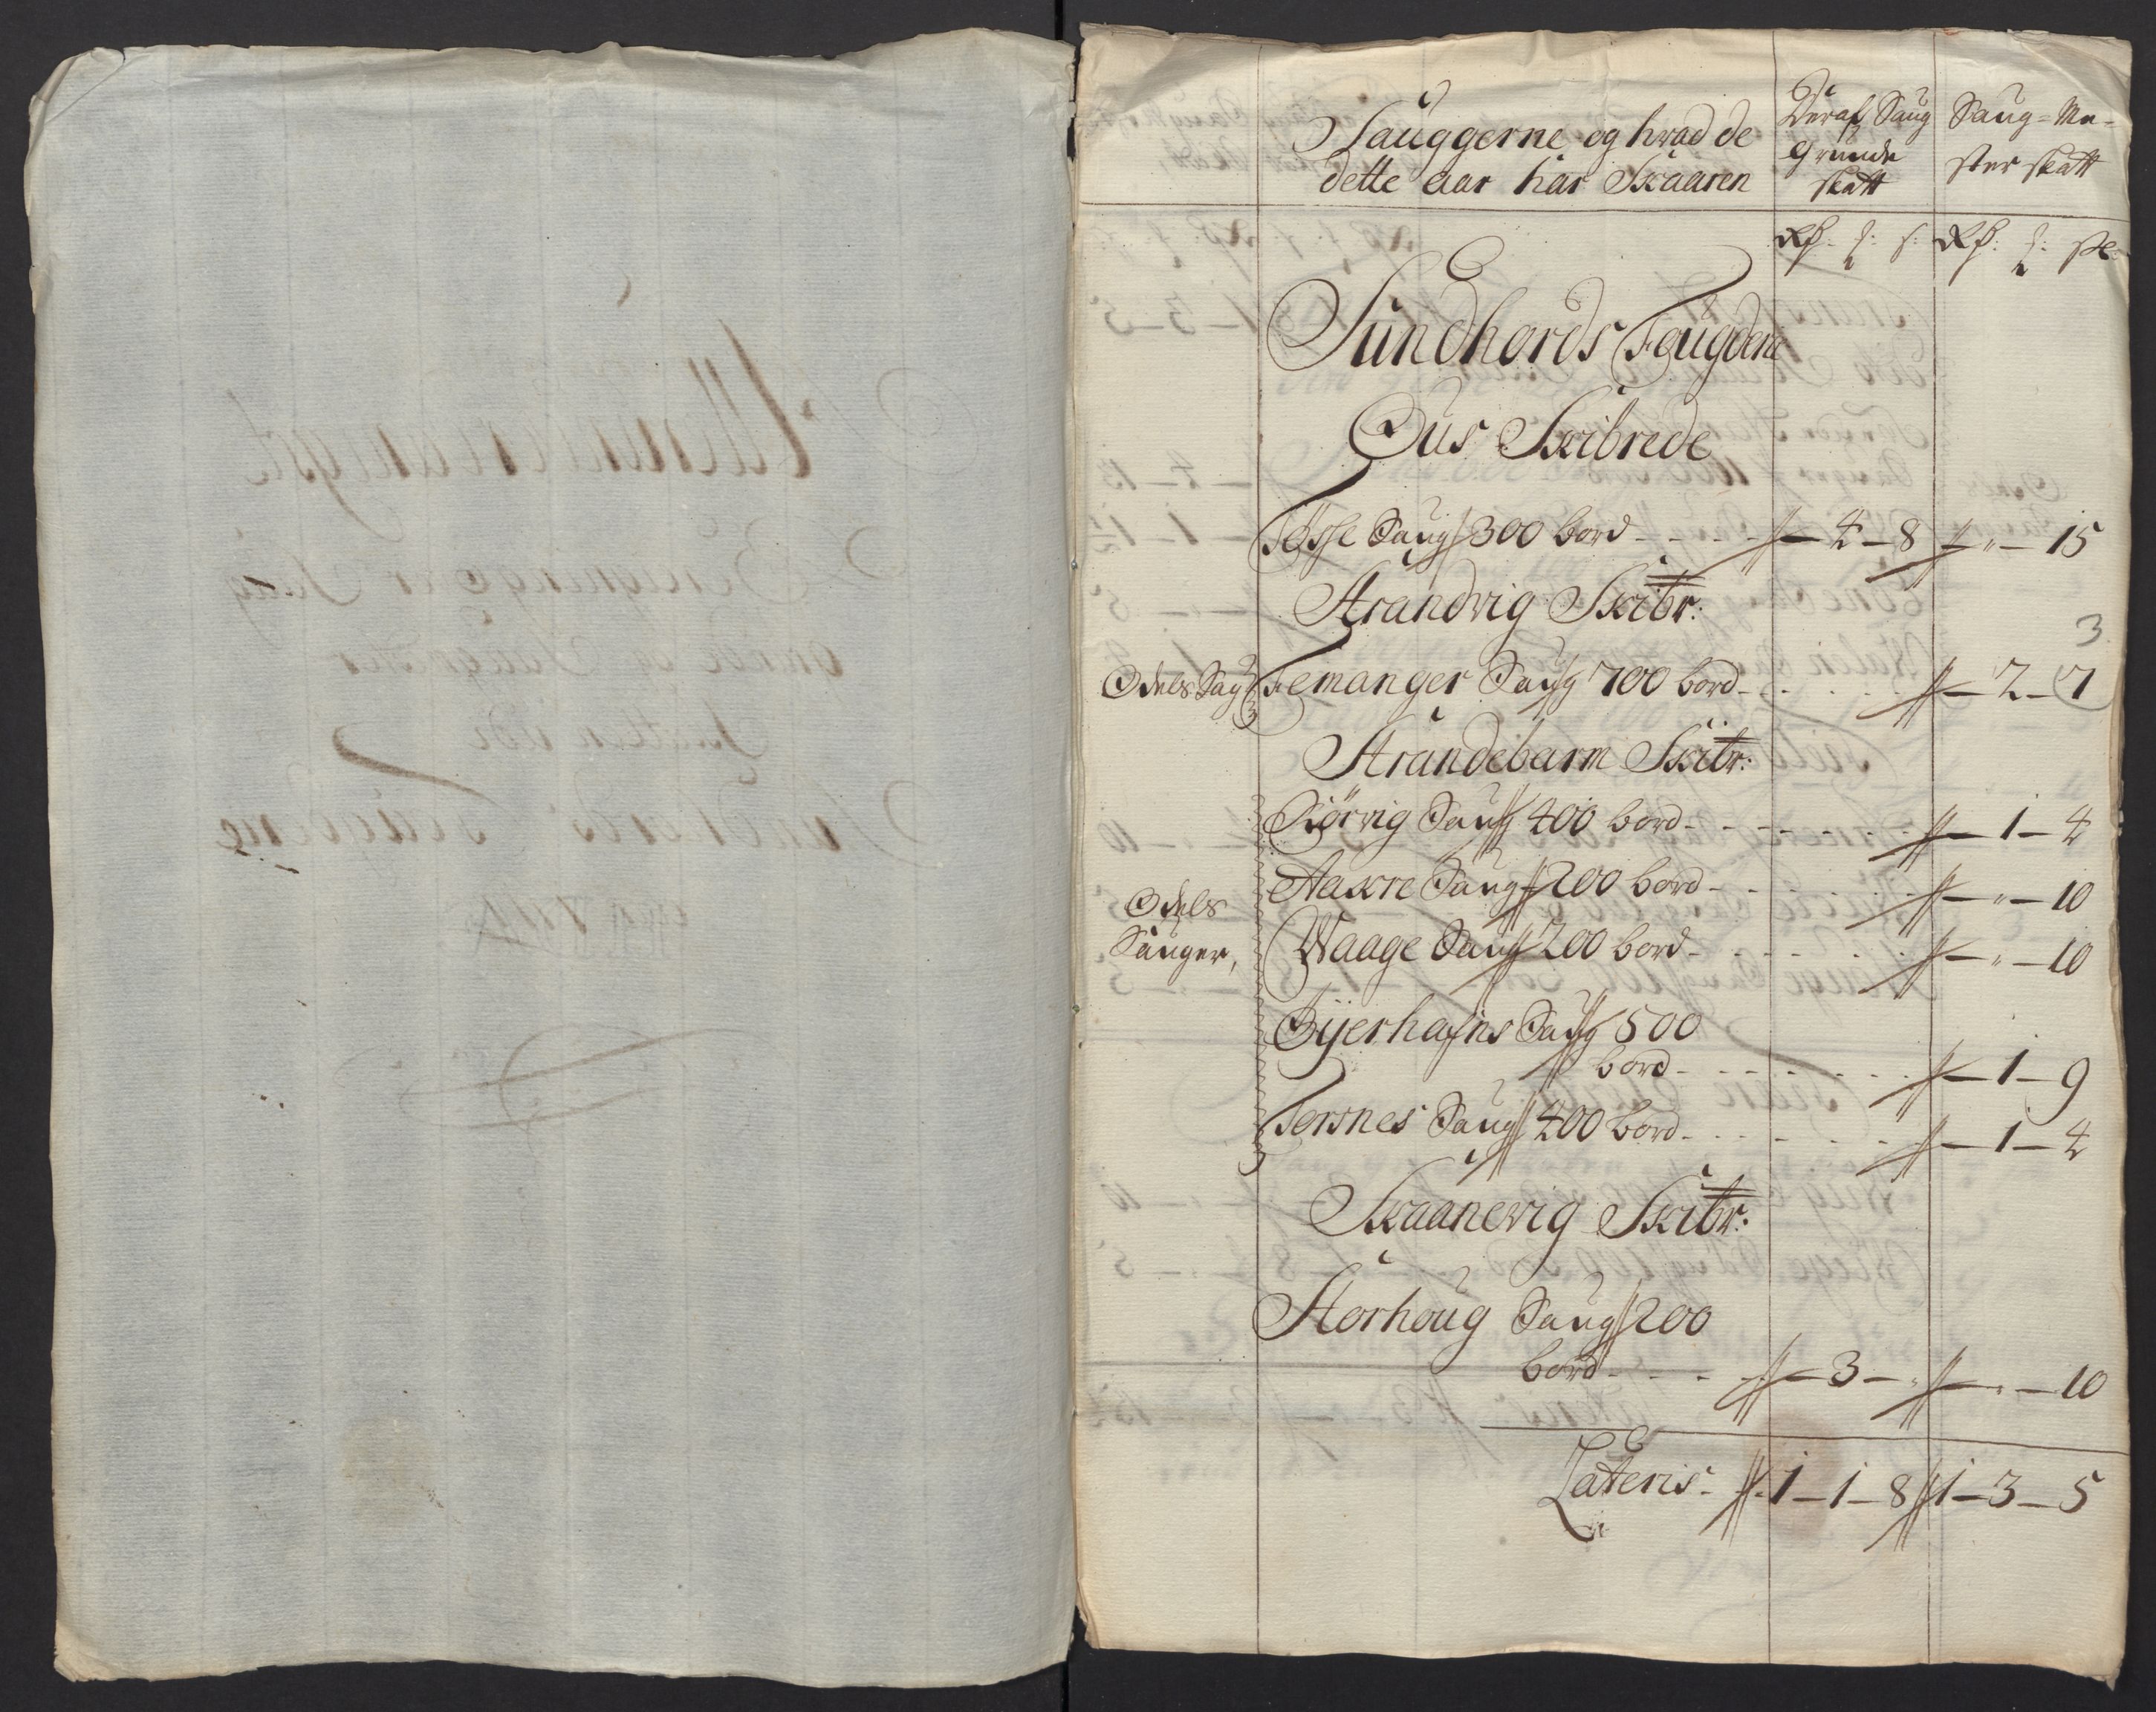 Sauggerne og hvad de
dette aar har Skaaren
Deraf Saug
Grunde
skatt
Saug-Me-
ster skatt
Rd: ƶ: s: Rd: ƶ: sk
Sundhords Fougderi
Øus Skibrede
Tøsse Saug 300 bord - - - - 4 - 8 - " - 15
Strandvig Skibr:
3
Odels Sag Femanger Saug 700 bord - - - - 2 - 7
Strandebarm Skibr:
Kiørvig Saug 400 bord - - - - 1 - 4
Aakre Saug 200 bord - - - - " - 10
Odels
Sauger,
Waage Saug 200 bord - - - - " - 10
Gjerhafns Saug 500
bord - - - - 1 - 9
Torsnes Saug 400 bord - - - - 1 - 4
Skaanevig Skibr:
Storhoug Saug 200
bord - - - - 3 - " - " - 10
Lateris - 1 - 1 - 8 1 - 3 - 5